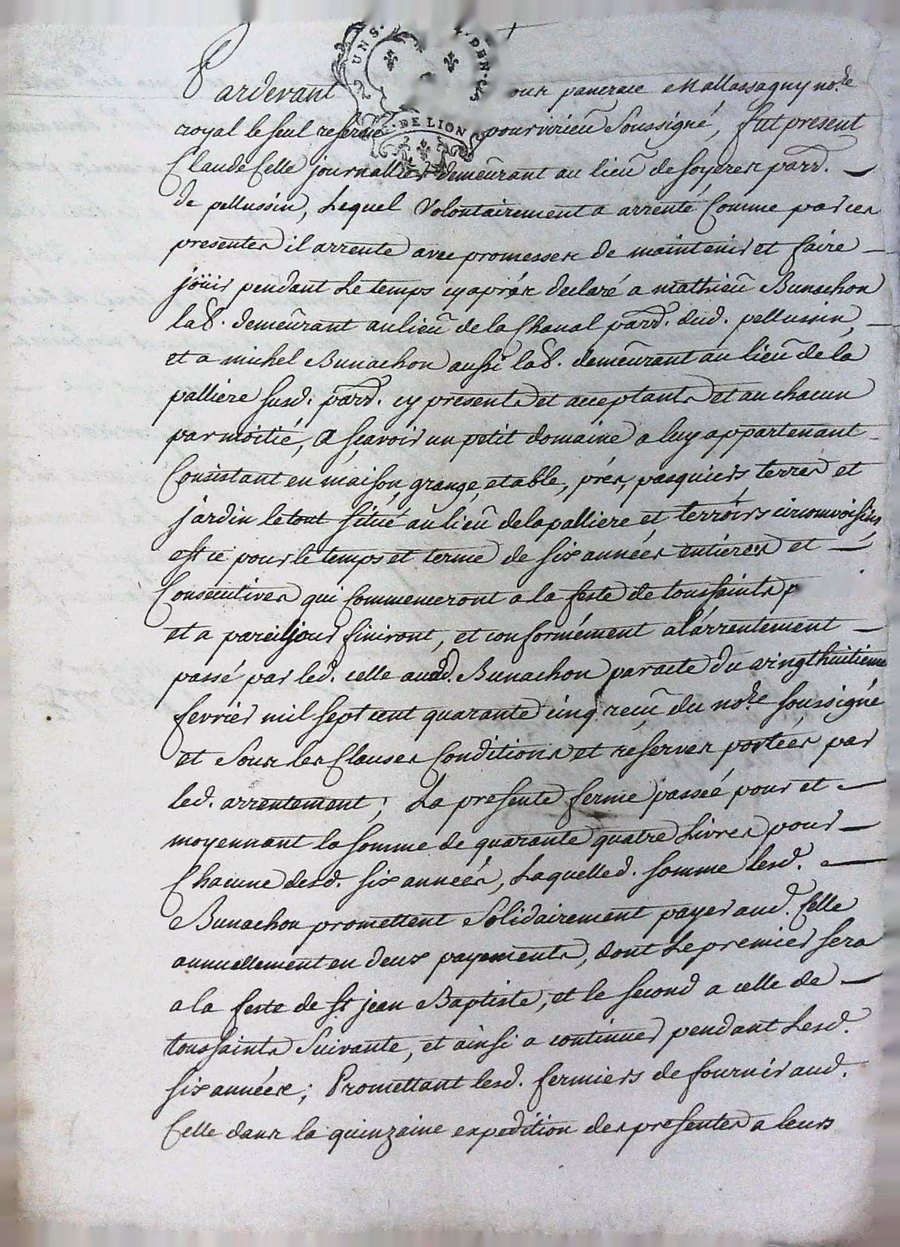 UNS. DEN. CS
DE LION
Pardevant pancrace Mallassagny no.re
royal le seul reservé pour virieu soussigné, fut present
Claude Celle journallier demeurant au lieu de soyeres parr.
de pellussin, Lequel Volontairement a arrenté Comme par ces
presentes il arrente avec promesses de maintenir et faire
joüir pendant Le temps cy aprés declaré a mathieu Bunachon
lab.r demeurant au lieu de la Chanal parr. dud. pellussin,
et a michel Bunachon aussi lab.r demeurant au lieu de la
palliere susd. parr. cy presents et acceptants et au chacun
par moitié, a sçavoir un petit domaine a luy appartenant
Consistant en maison, grange, etable, prés, pasquiers terres et
jardin le tout situé au lieu de la palliere et terroirs circonvoisins
est ce pour le temps et terme de six années entieres et
Consecutives qui Commenceront a la feste de toussaints
et a pareil jour finiront, et conformément a l'arrentement
passé par led. celle aud. Bunachon par acte du vingt huitième
fevrier mil sept cent quarante cinq reçu du no.re soussigné
et Sous les Clauses Conditions et réserves portées par
led. arrentement; La presente ferme passée pour et
moyennant la somme de quarante quatre Livres pour
Chacune desd. six années, Laquelle d. somme lesd.
Bunachon promettent Solidairement payer aud. Celle
annuellement en deux payements, dont Le premier sera
a la feste de St jean Baptiste, et le second a celle de
toussaints Suivante, et ainsi a continuer pendant Lesd.
six années; Promettant lesd. fermiers de fournir aud.
Celle dans la quinzaine expedition des presentes a leurs